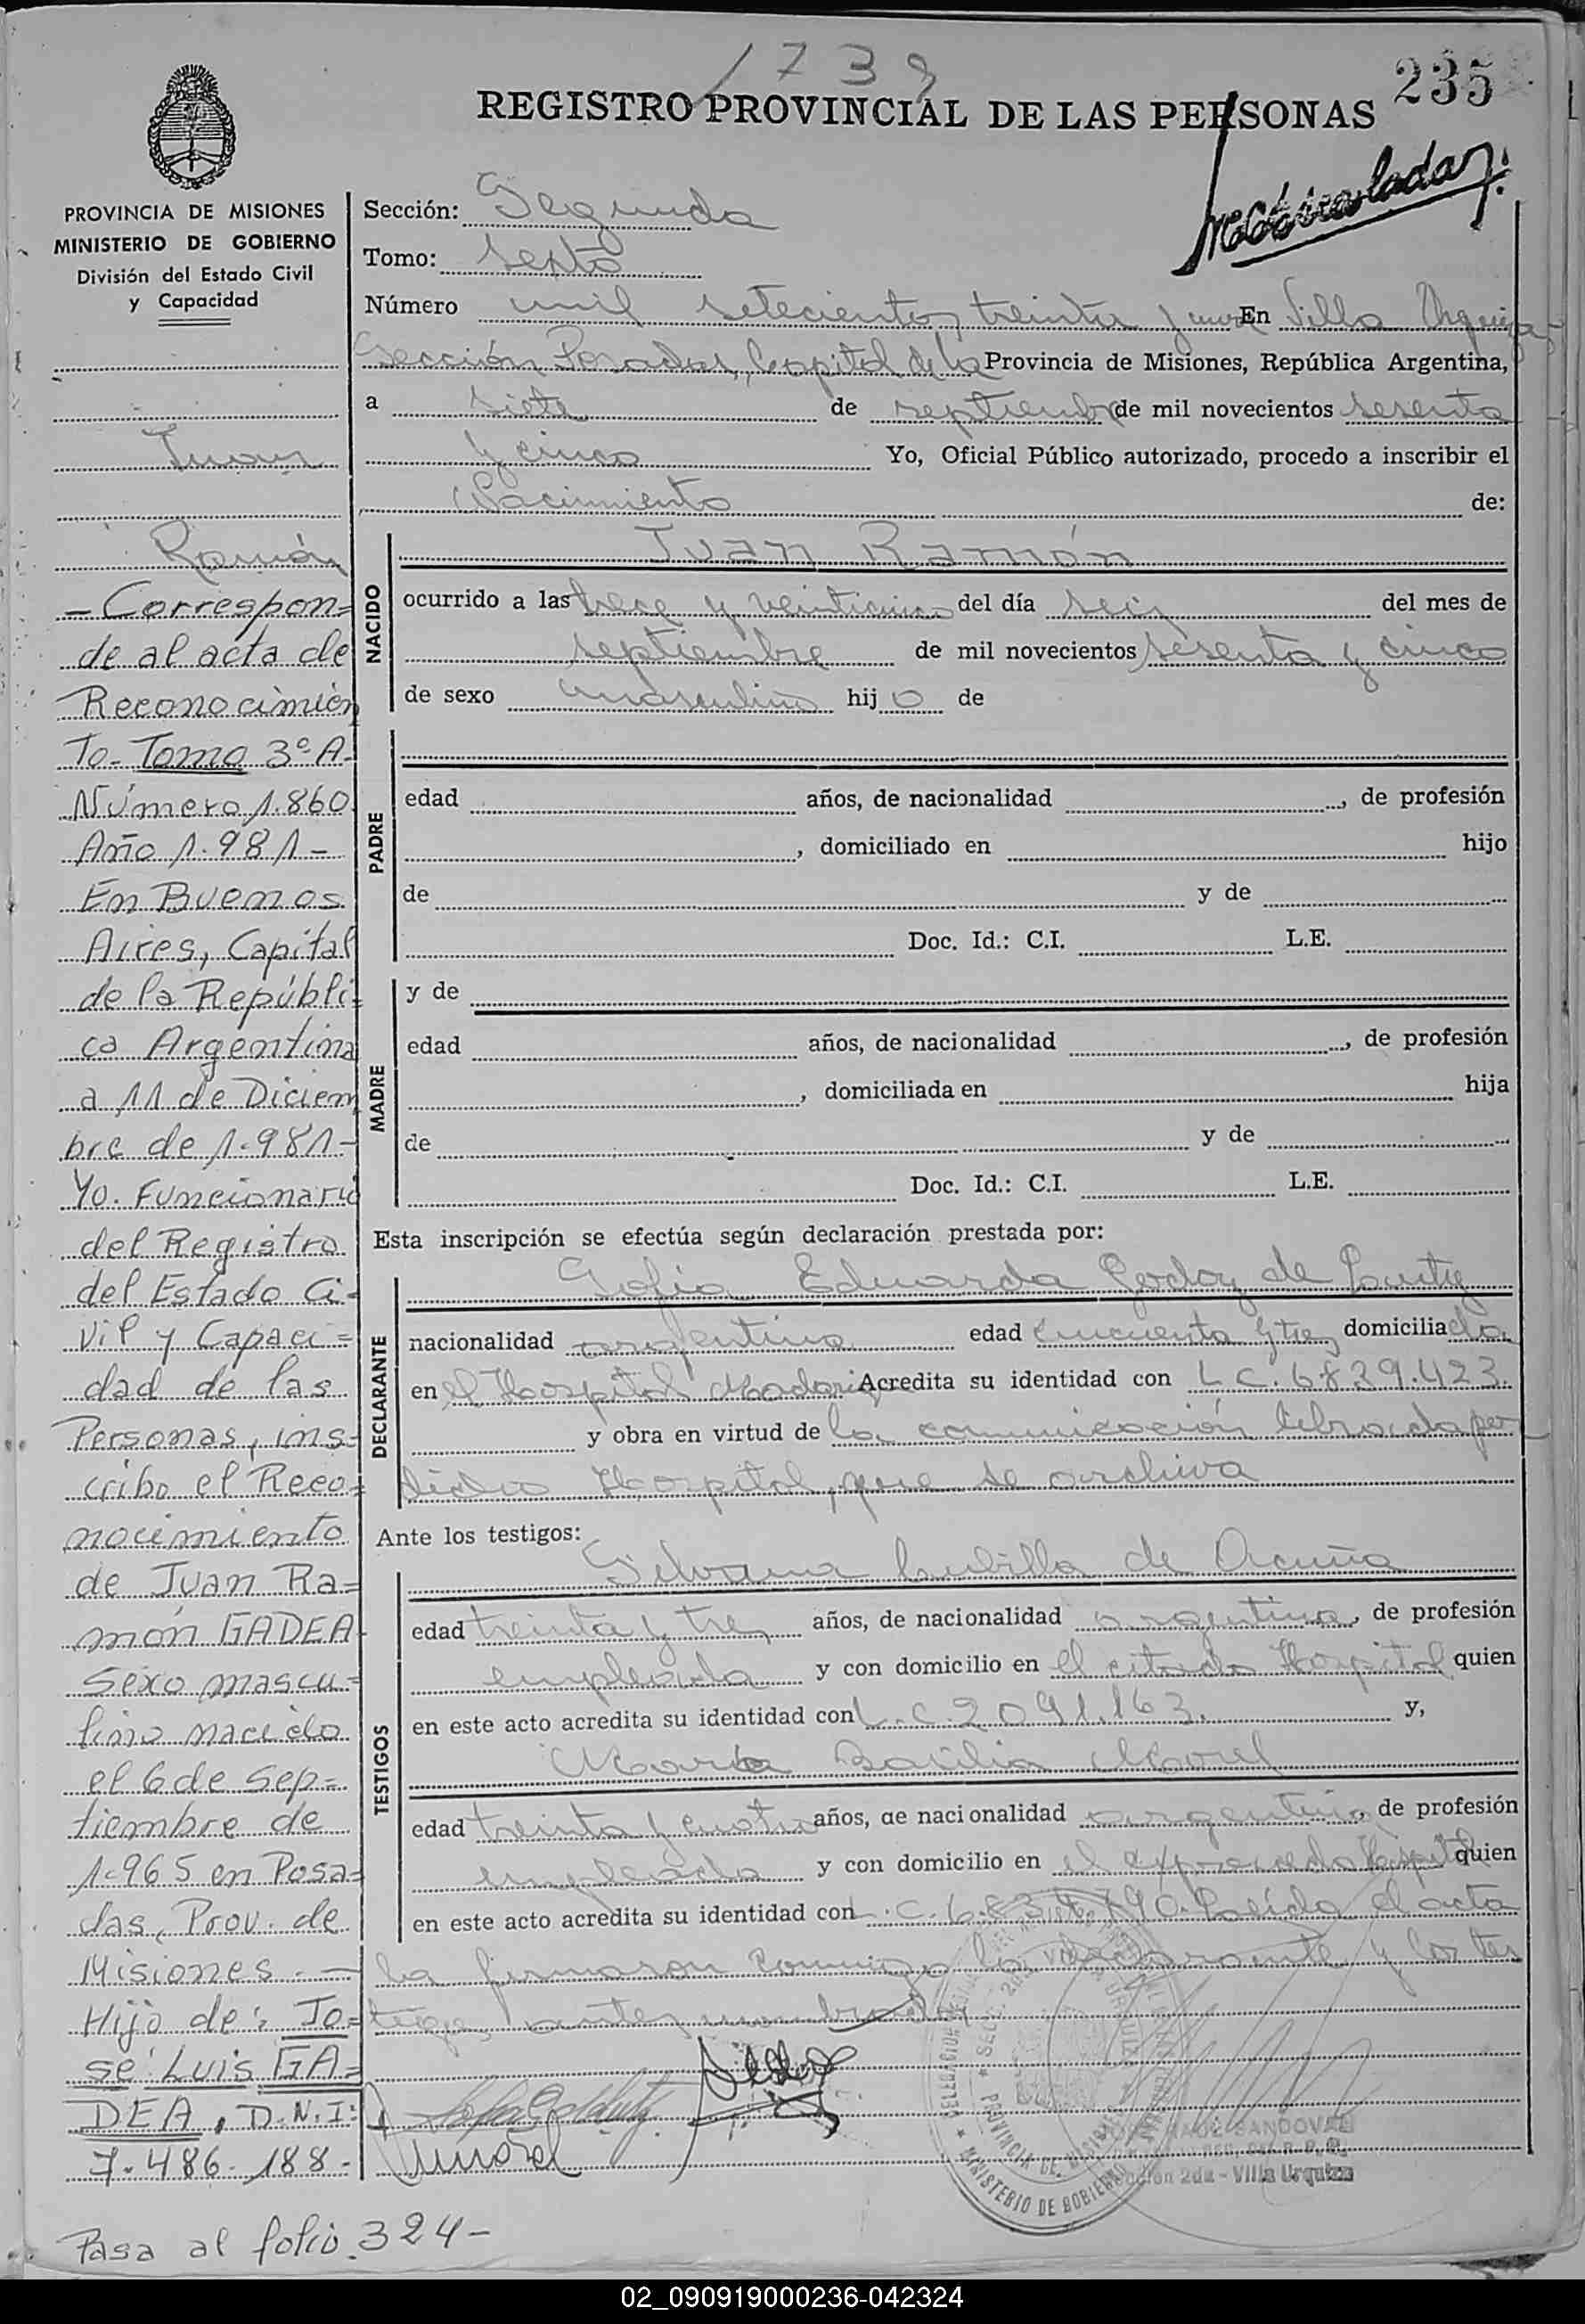 1739
235
REGISTRO PROVINCIAL DE LAS PERSONAS
PROVINCIA DE MISIONES
MINISTERIO DE GOBIERNO
División del Estado Civil
y Capacidad
Sección: Segunda
Tomo: Sexto
Número mil setecientos treinta y nueve En Villa Urquiza,
Sección Posadas, Capital de la Provincia de Misiones, República Argentina,
a siete de septiembre de mil novecientos sesenta
y cinco Yo, Oficial Público autorizado, procedo a inscribir el
Nacimiento de:
NACIDO
Juan Ramón
ocurrido a las trece y veinticinco del día seis del mes de
septiembre de mil novecientos sesenta y cinco
de sexo masculino hijo de
PADRE
edad años, de nacionalidad , de profesión
, domiciliado en hijo
de y de
Doc. Id.: C.I. L.E.
MADRE
y de
edad años, de nacionalidad , de profesión
, domiciliada en hija
de y de
Doc. Id.: C.I. L.E.
Esta inscripción se efectúa según declaración prestada por:
DECLARANTE
Sofia Eduarda Godoy de
nacionalidad argentina edad cincuenta y tres domiciliada
en el Hospital Madariaga Acredita su identidad con L.C. 6829.423.
y obra en virtud de la comunicación librada por
dicho Hospital, que se archiva
Ante los testigos:
TESTIGOS
Silvana Cubilla de Acuña
edad treinta y tres años, de nacionalidad argentina, de profesión
empleada y con domicilio en el citado Hospital quien
en este acto acredita su identidad con L.C. 2091.163. y,
María Basilia Morel
edad treinta y cuatro años, de nacionalidad argentina, de profesión
empleada y con domicilio en el expresado Hospital quien
en este acto acredita su identidad con L.C. Leída el acta
la firmaron conmigo la declarante y los tes
tigos antes nombrados
Juan
Ramón
- Correspon=
de al acta de
Reconocimien
To- Tomo 3º A-
Número 1.860
Año 1.981-
En Buenos
Aires, Capital
de la Repúbli=
ca Argentina
a 11 de Diciem
bre de 1.981-
Yo. Funcionario
del Registro
del Estado Ci-
vil y Capaci=
dad de las
Personas, ins-
cribo el Reco=
nocimiento
de Juan Ra=
món GADEA-
Sexo mascu-
lino nacido
el 6 de Sep=
tiembre de
1.965 en Posa=
das, Prov. de
Misiones.—
Hijo de: Jo=
sé Luis GA=
DEA, D.N.I:
7.486.188-
Pasa al folio 324-
MINISTERIO DE GOBIERNO
PROVINCIA DE MISIONES
SANDOVAL
Sección 2da - Villa Urquiza
02_090919000236-042324